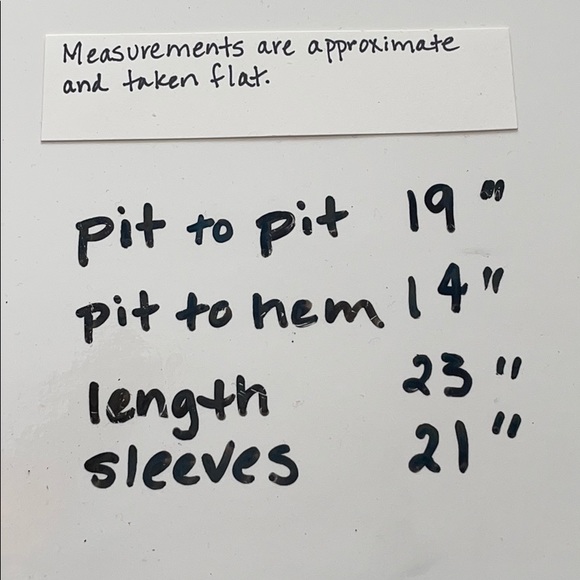 Measurements are approximate
and taken flat.
pit to pit 19"
pit to hem 14"
length 23"
sleeves 21"